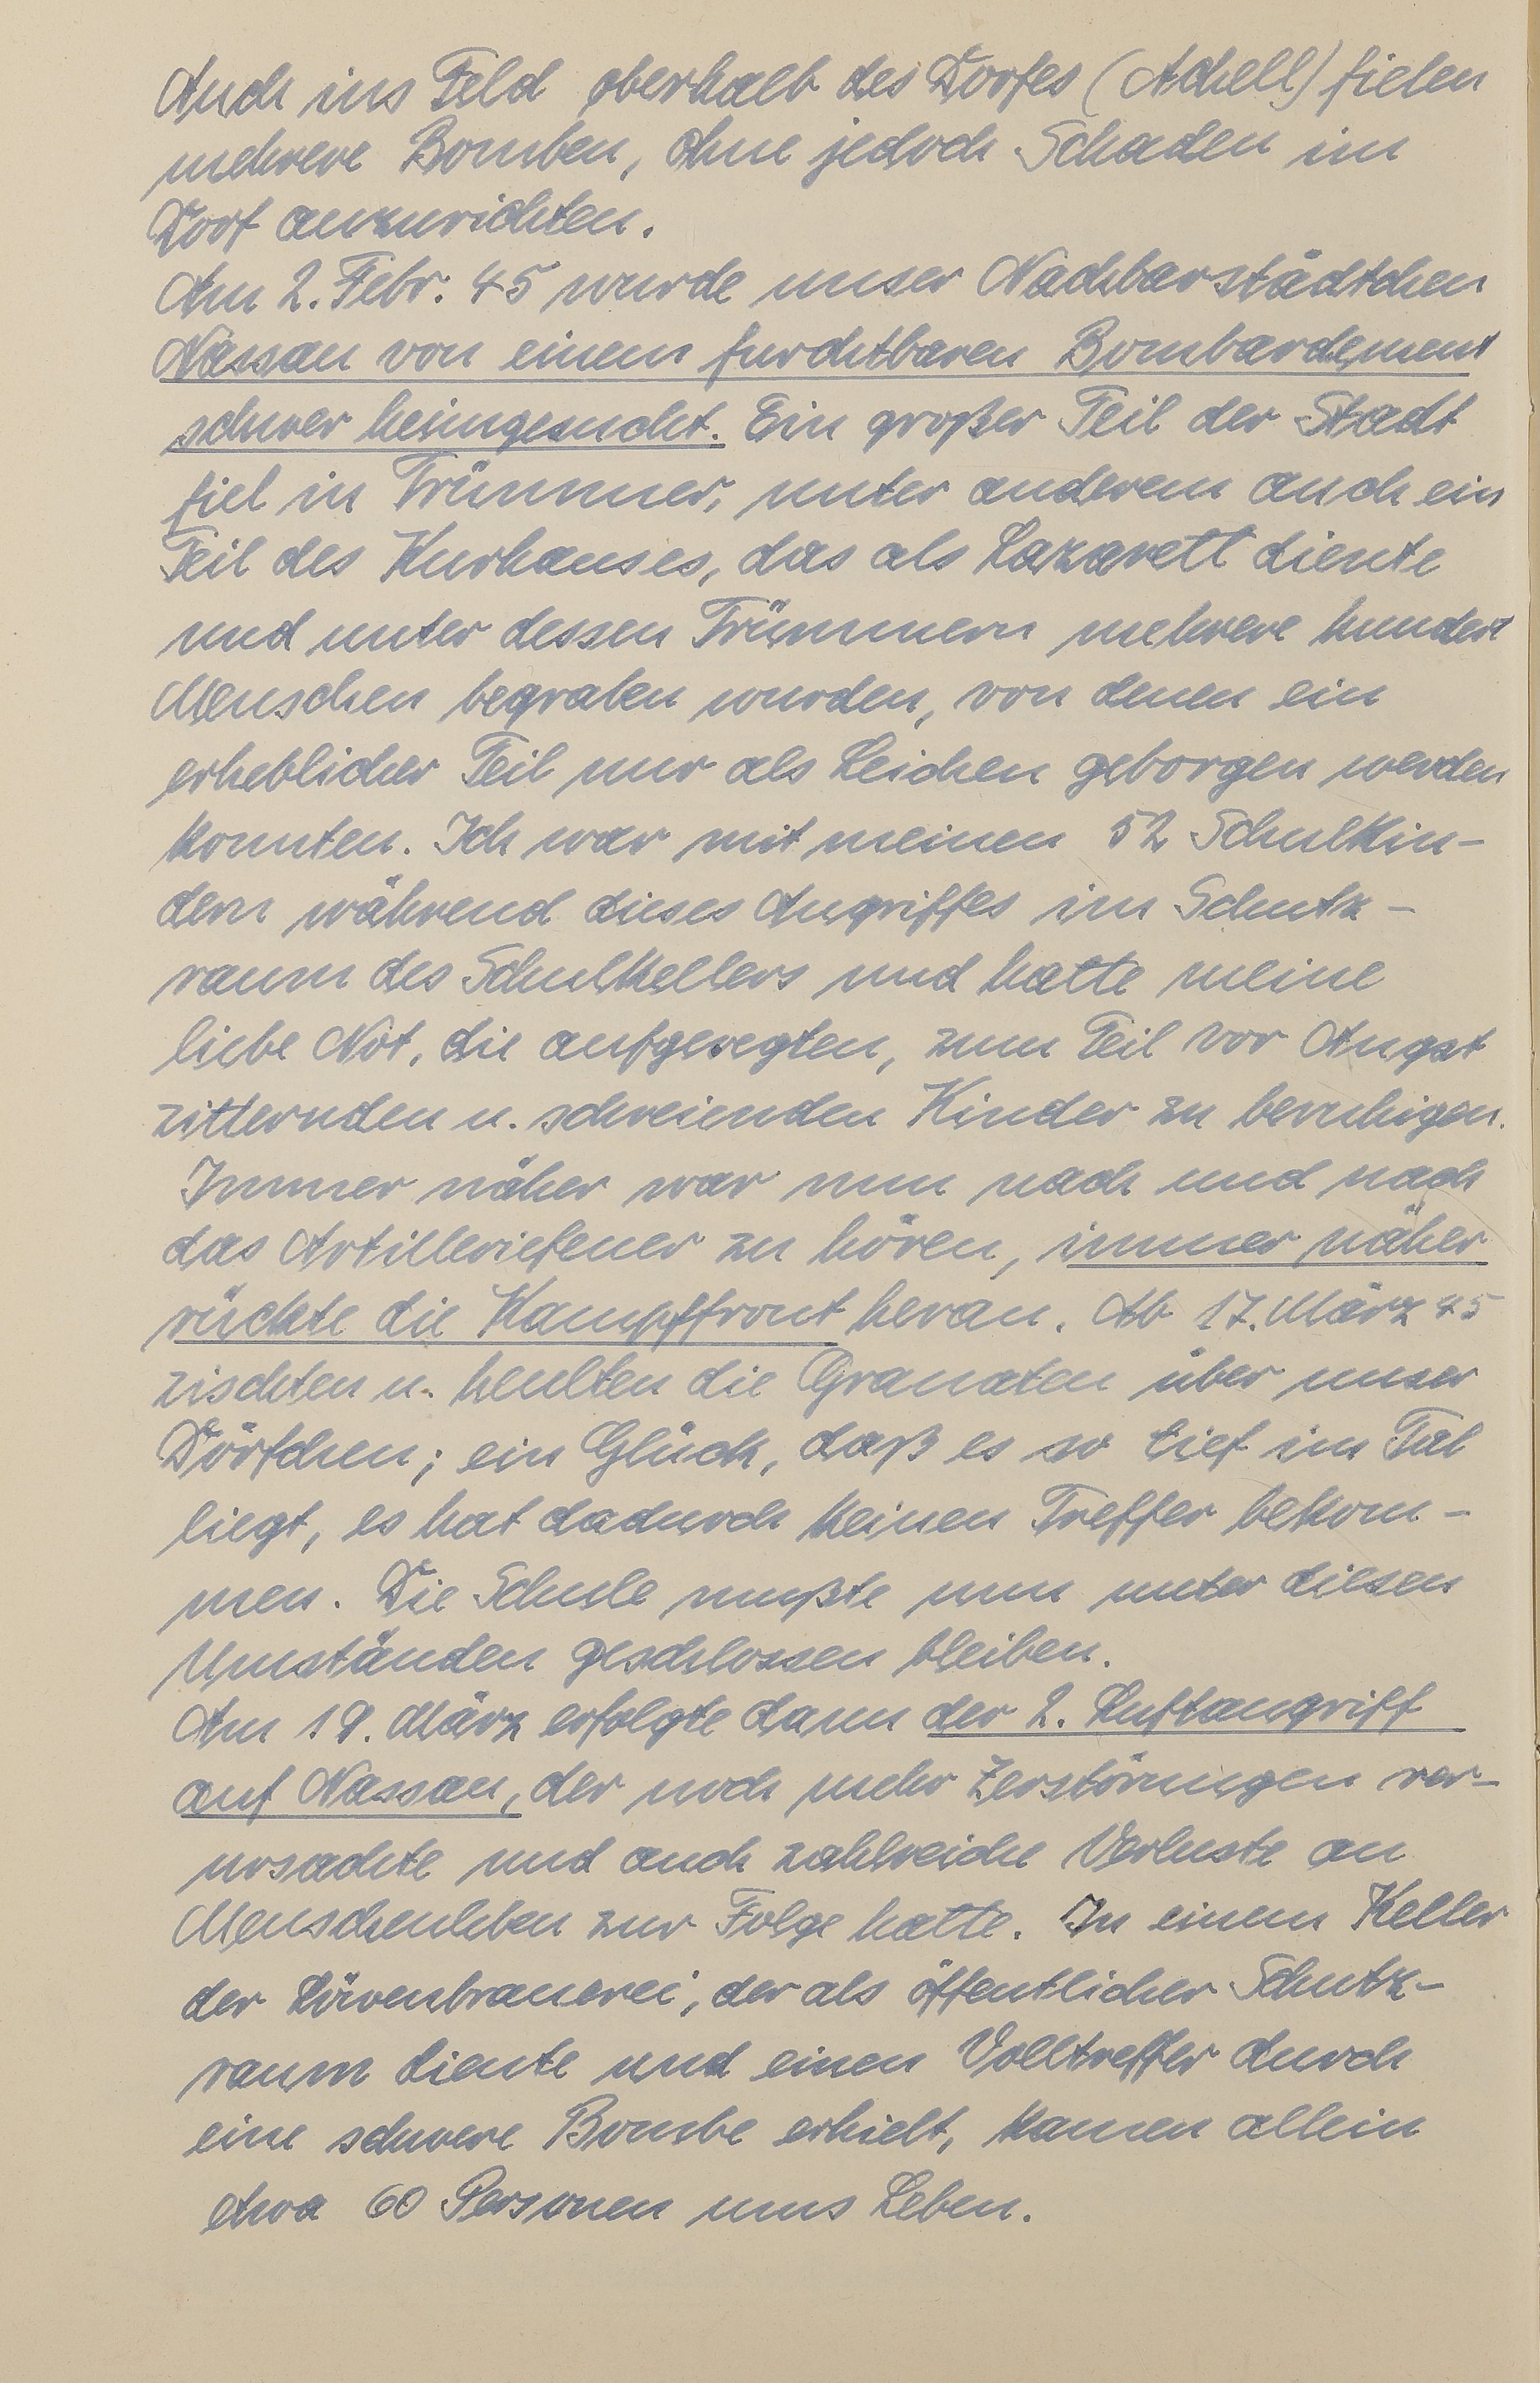 Auch ins Feld oberhalb des Dorfes (Achell) fielen
mehrere Bomben, ohne jedoch Schaden im
Dorf anzurichten.
Am 2. Febr. 45 wurde unser Nachbarstädtchen
Nassau von einem furchtbaren Bombardement
schwer heimgesucht. Ein großer Teil der Stadt
fiel in Trümmer, unter anderem auch ein
Teil des Kurhauses, das als Lazarett diente
und unter dessen Trümmern mehrere hundert
Menschen begraben wurden, von denen ein
erheblicher Teil nur als Leichen geborgen werden
konnten. Ich war mit meinen 52 Schulkin-
dern während dieses Angriffes im Schutz-
raum des Schulkellers und hatte meine
liebe Not, die aufgeregten, zum Teil vor Angst
zitternden u. schreienden Kinder zu beruhigen.
Immer näher war nun nach und nach
das Artilleriefeuer zu hören, immer näher
rückte die Kampffront heran. Ab 17. März 45
zischten u. heulten die Granaten über unser
Dörfchen; ein Glück, daß es so tief im Tal
liegt, es hat dadurch keinen Treffer bekom-
men. Die Schule mußte nun unter diesen
Umständen geschlossen bleiben.
Am 19. März erfolgte dann der 2. Luftangriff
auf Nassau, der noch mehr Zerstörungen ver-
ursachte und auch zahlreiche Verluste an
Menschenleben zur Folge hatte. In einem Keller
der Löwenbrauerei, der als öffentlicher Schutz-
raum diente und einen Volltreffer durch
eine schwere Bombe erhielt, kamen allein
etwa 60 Personen ums Leben.